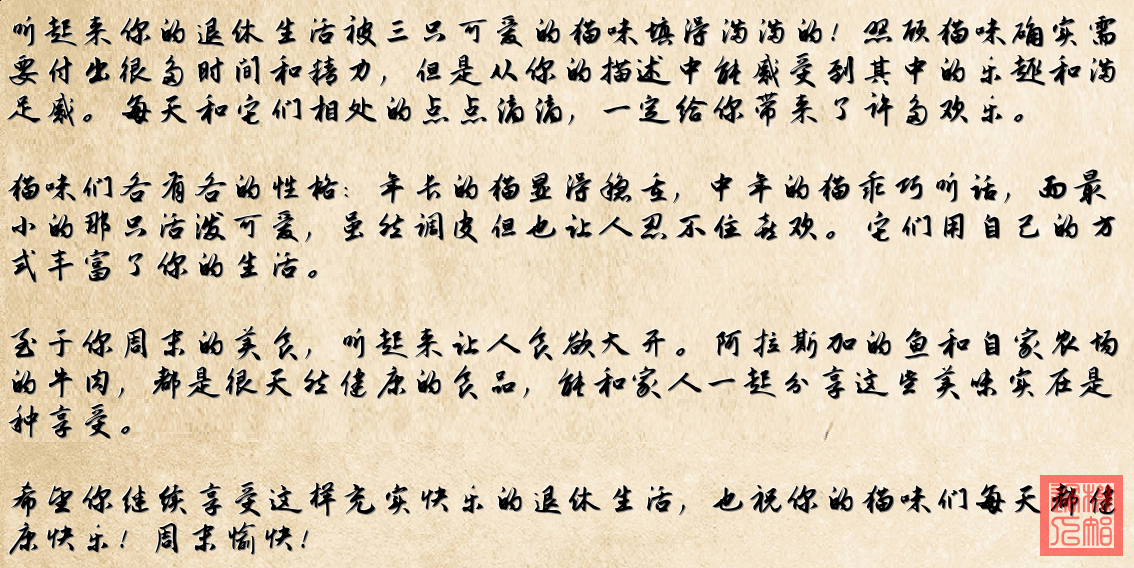 听起来你的退休生活被三只可爱的猫咪填得满满的！照顾猫咪确实需
要付出很多时间和精力，但是从你的描述中能感受到其中的乐趣和满
足感。每天和它们相处的点点滴滴，一定给你带来了许多欢乐。
猫咪们各有各的性格：年长的猫显得稳重，中年的猫乖巧听话，而最
小的那只活泼可爱，虽然调皮但也让人忍不住喜欢。它们用自己的方
式丰富了你的生活。
至于你周末的美食，听起来让人食欲大开。阿拉斯加的鱼和自家农场
的牛肉，都是很天然健康的食品，能和家人一起分享这些美味实在是
种享受。
希望你继续享受这样充实快乐的退休生活，也祝你的猫咪们每天都健
康快乐！周末愉快！